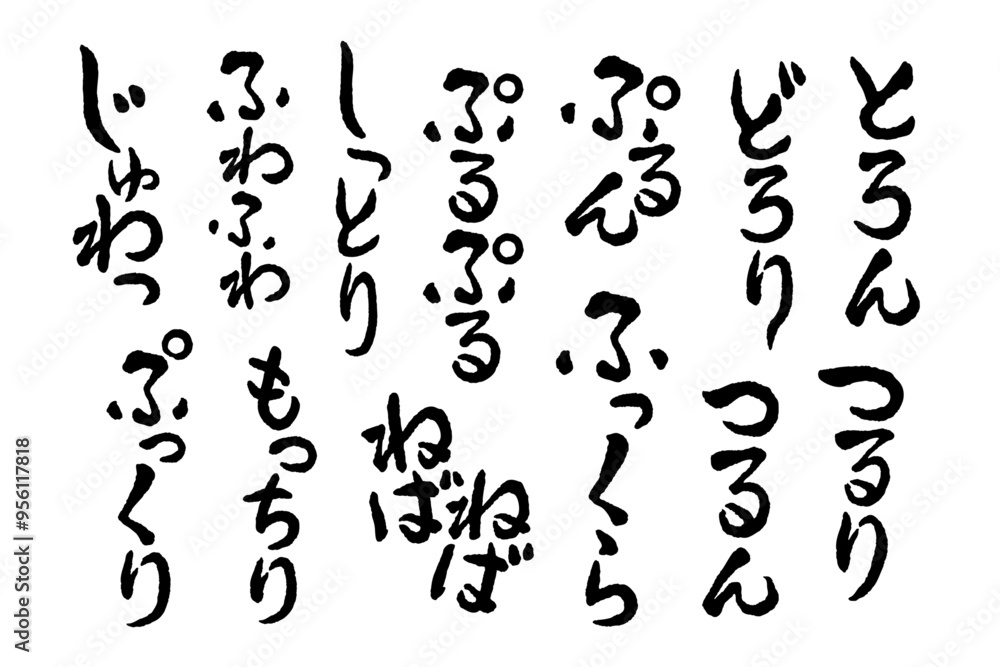 とろん
どろり
ぷるん
ぷるぷる
しっとり
ふわふわ
じゅわっ
つるり
つるん
ふっくら
ねばねば
もっちり
ぷっくり
Adobe Stock | #956117818